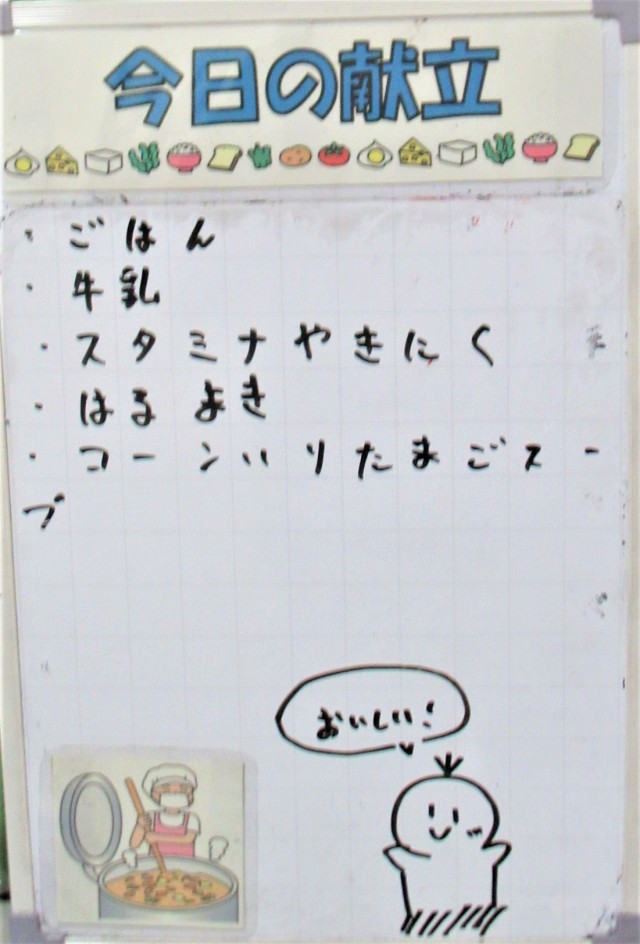 今日の献立
・ごはん
・牛乳
・スタミナやきにく
・はるまき
・コーンいりたまごスー
プ
おいしい!